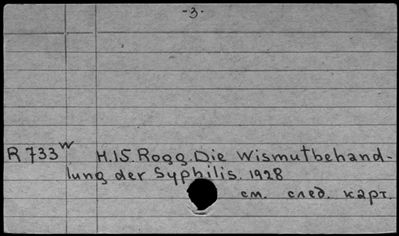 -3-
R 733 w H.15. Rogg. Die Wismutbehand-
lung der Syphilis. 1928
см. след. карт.